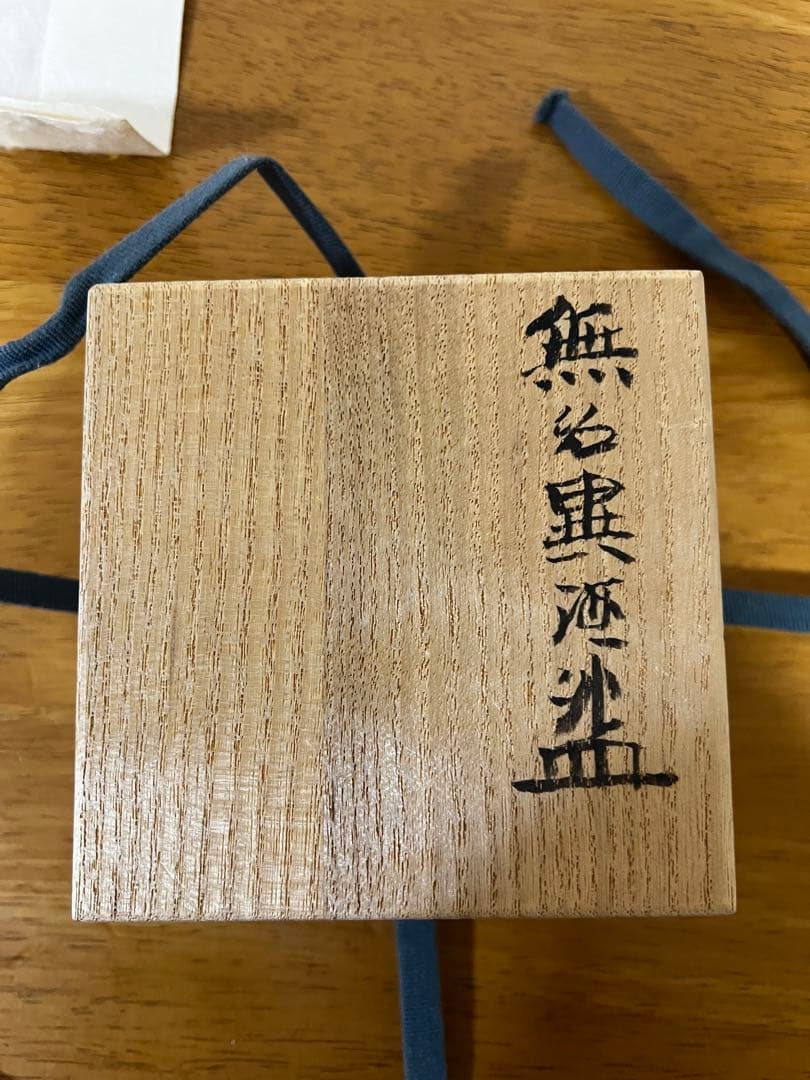 無名異酒盃